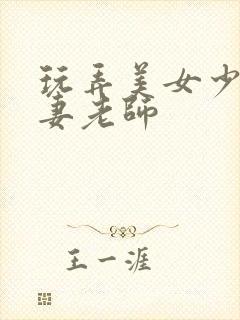 玩弄美女少
妻老师
王一涯